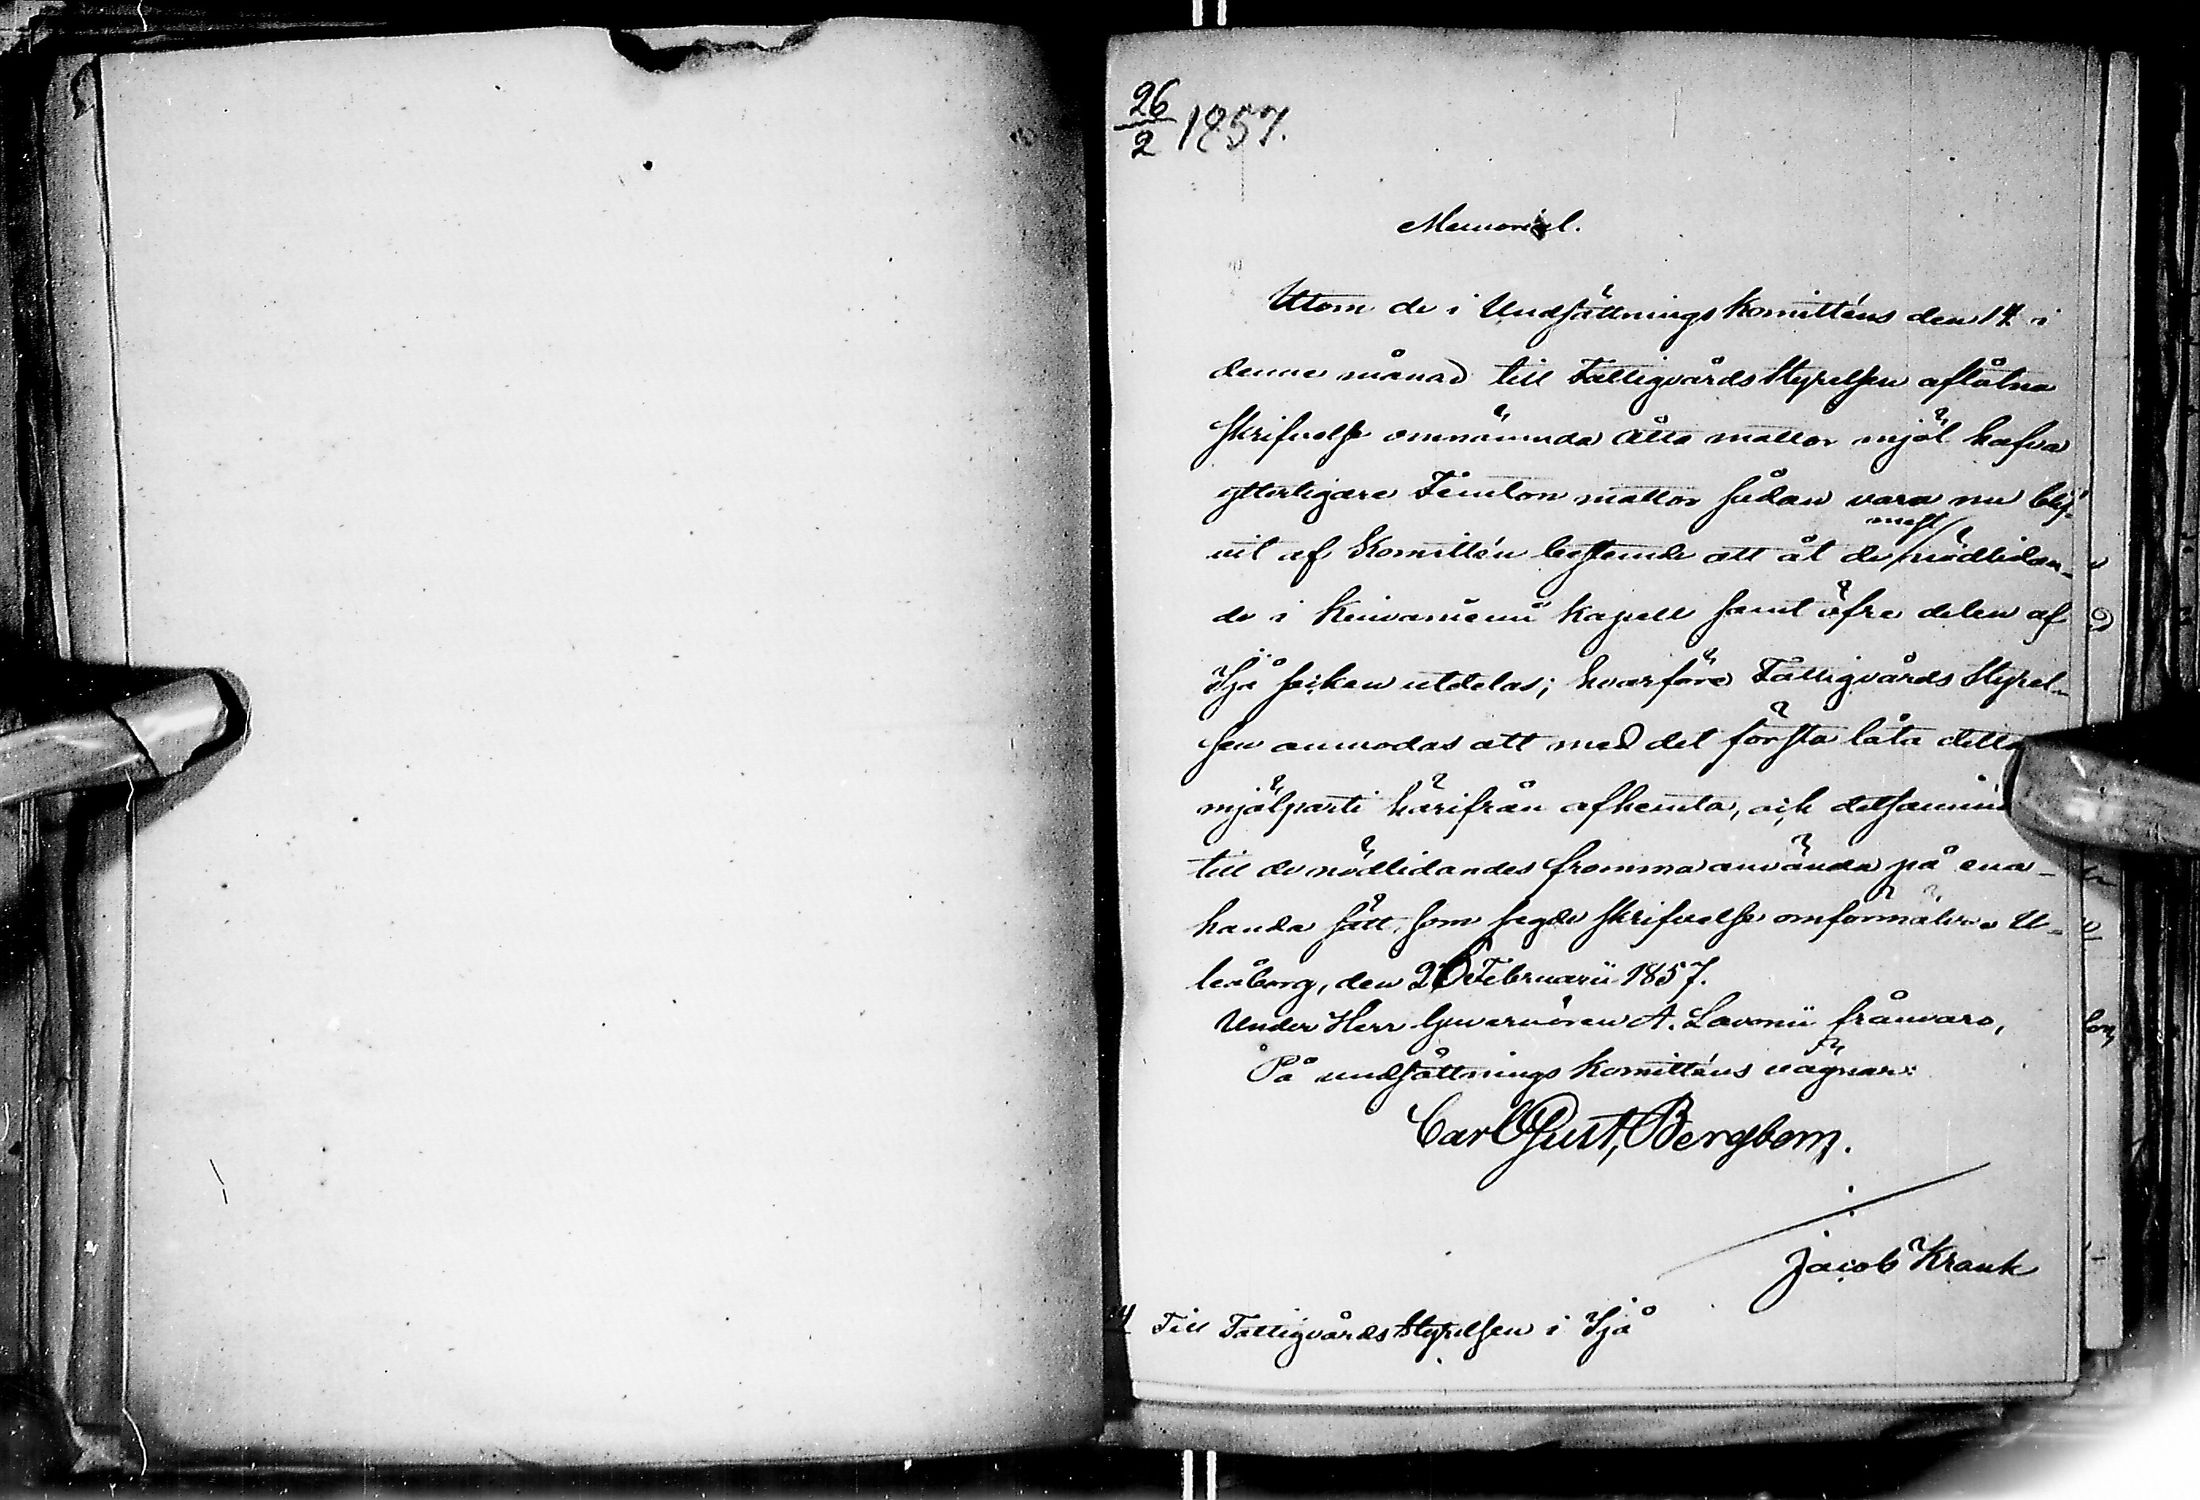 26/2 1857.
Memorial.
Utom de i Undsättnings Komitténs den 14 i
denne månad till Fattigvårds Styrelsen aflåtna
skrifvelse omnämnda Åtta mattor mjöl hafva
ytterligare Femton mattor sådan vara nu blif-
mest
vit af Komittén bestemde att åt de nödlidan-
de i Kuivaniemi Kapell samt öfre delen af
Ijå socken utdelas; hvarföre Fattigvårds Styrel-
sen anmodas att med det första låta detta
mjölparti härifrån afhemta, och detsamma
till de nödlidandes fromma använda på ena-
handa sätt, som sagde skrifvelse omförmäler. U-
leåborg, den 26 Februarii 1857.
Under Herr Guvernören A. Lavonii frånvaro,
På undsättnings Komitténs vägnar:
Carl Gust, Bergbom.
Jacob Krank
Till Fattigvårds Styrelsen i Ijå